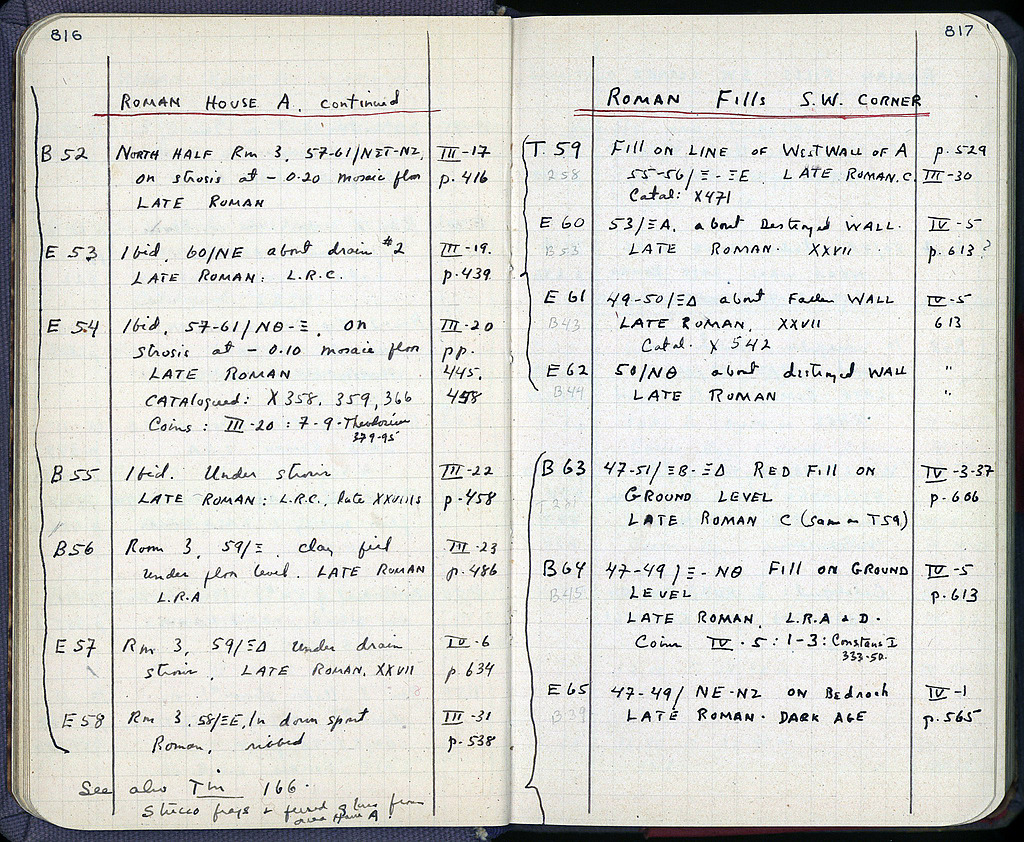 816
ROMAN HOUSE A. continued
B 52 NORTH HALF Rm 3. 57-61/NΣT-NZ, III-17
on strosis at - 0.20 mosaic floor p. 416
LATE ROMAN
E 53 Ibid. 60/NE about drain #2 III-19.
LATE ROMAN: L.R.C. p. 439
E 54 Ibid. 57-61/NΘ-Ξ, on III-20
strosis at - 0.10 mosaic floor pp.
LATE ROMAN 445,
CATALOGUED: X 358, 359, 366 458
Coins: III-20: 7-9-Theodosius
379-95
B 55 Ibid. Under strosis III-22
LATE ROMAN: L.R.C. late XXVIIIs p. 458
B 56 Room 3, 59/Ξ. clay fill III-23
under floor level. LATE ROMAN p. 486
L.R.A
E 57 Rm 3, 59/ΞΔ under drain IV-6
strosis, LATE ROMAN, XXVII p. 634
E 58 Rm 3. 58/ΞE, In down spout III-31
Roman, ribbed p. 538
See also Tin 166.
Stucco frags & fused glass from
area House A.
817
ROMAN Fills S.W. CORNER
T. 59 Fill ON LINE OF West WALL of A p. 529
258 55-56/Ξ-ΞE. LATE ROMAN. C. III-30
Catal: X471
E 60 53/ΞA. about Destroyed WALL. IV-5
B53 LATE ROMAN. XXVII p. 613?
E 61 49-50/ΞΔ about Fallen WALL IV-5
B43 LATE ROMAN, XXVII 613
Catal. X 542
E 62 50/NΘ about destroyed WALL "
B44 LATE ROMAN "
B 63 47-51/ΞB-ΞΔ RED Fill ON IV-3-37
GROUND LEVEL p. 606
LATE ROMAN C (same as T59)
B 64 47-49/Ξ-NΘ Fill ON GROUND IV-5
B45 LEVEL p. 613
LATE ROMAN, L.R.A & D.
Coins IV-5: 1-3: Constans I
333-50.
E 65 47-49/NE-NZ ON Bedrock IV-1
B39 LATE ROMAN. DARK AGE p. 565